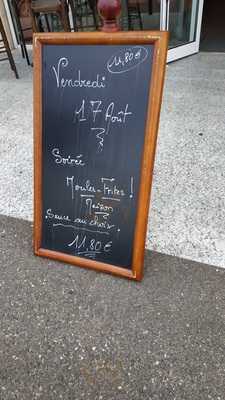 11,80€
Vendredi
17 Août
Soirée
Moules-Frites!
Maison
Sauce au choix.
11,80€